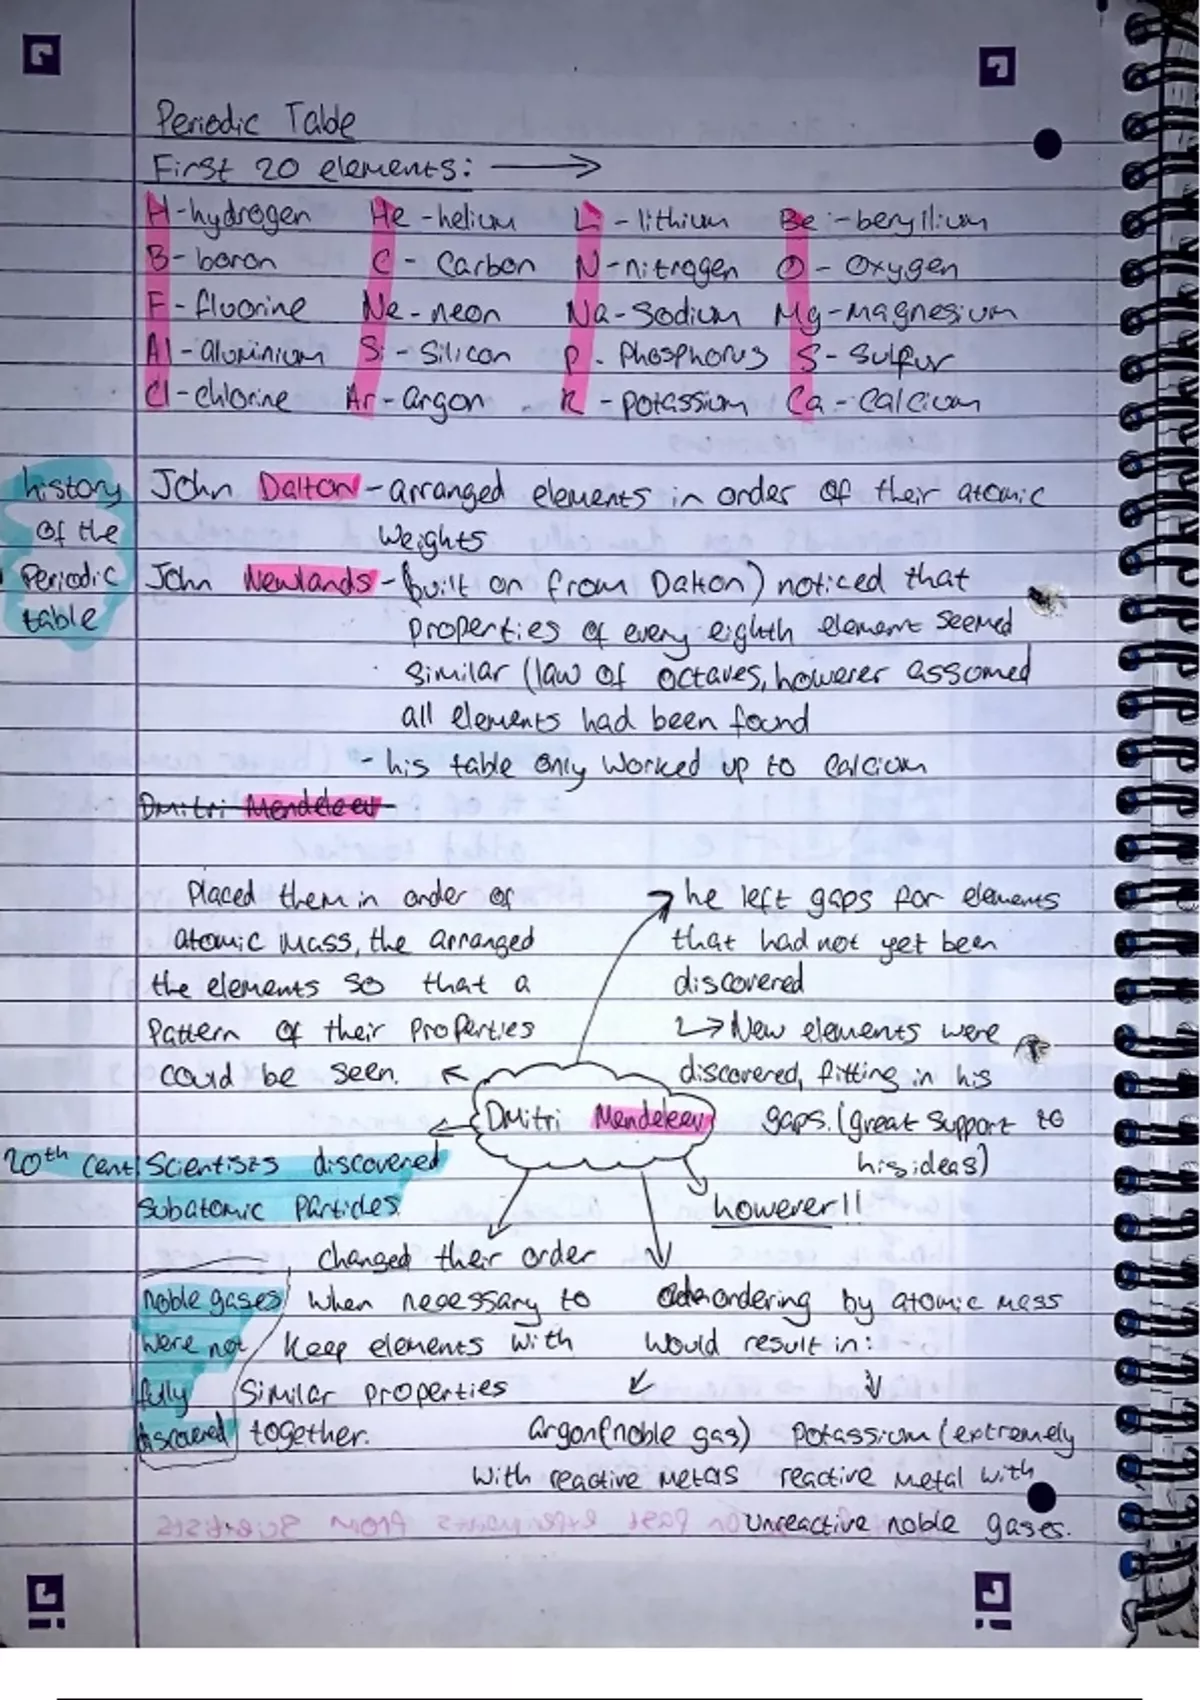 Periodic Table
First 20 elements: →
H - hydrogen He - helium Li - lithium Be - beryllium
B - boron C - Carbon N - nitrogen O - Oxygen
F - fluorine Ne - neon Na - Sodium Mg - magnesium
Al - aluminium Si - Silicon P - Phosphorus S - Sulfur
Cl - chlorine Ar - argon K - potassium Ca - Calcium
history
of the
Periodic
table
John Dalton - arranged elements in order of their atomic
Weights
John Newlands - (built on from Dalton) noticed that
properties of every eighth element seemed
similar (law of octaves, however assumed
all elements had been found
- his table only worked up to Calcium
Dmitri Mendeleev
Placed them in order of
atomic mass, the arranged
the elements so that a
Pattern of their Properties
could be seen.
he left gaps for elements
that had not yet been
discovered
↳ New elements were
discovered, fitting in his
gaps. (great support to
his ideas)
Dmitri Mendeleev
20th cent Scientists discovered
Subatomic Particles.
however!!
changed their order
when necessary to
keep elements with
Similar properties
together.
noble gases
were not
fully
discovered
ordering by atomic mass
would result in:
argon (noble gas)
with reactive metals
potassium (extremely
reactive metal with
unreactive noble gases.